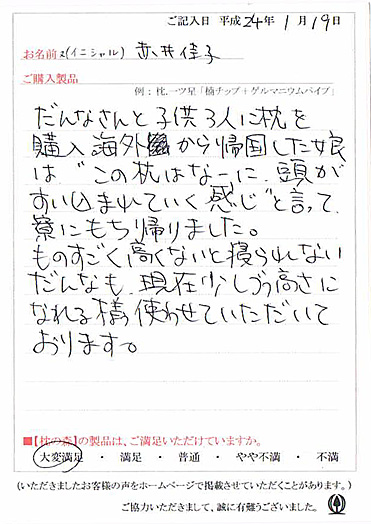 ご記入日 平成24年 1月 19日
お名前又(イニシャル) 赤井佳子
ご購入製品
例:枕.一ツ星「楠チップ+ゲルマニウムパイプ」
だんなさんと子供3人に枕を
購入 海外から帰国した娘
は“この枕はなーに、頭が
すい込まれていく感じ”と言って
寮にもち帰りました。
ものすごく高くないと寝られない
だんなも、現在少しづつ高さに
なれる様、使わせていただいて
おります。
■【枕の森】の製品は、ご満足いただけていますか。
大変満足 ・ 満足 ・ 普通 ・ やや不満 ・ 不満
(いただきましたお客様の声をホームページで掲載させていただくことがあります。)
ご協力いただきまして、誠に有難うございました。